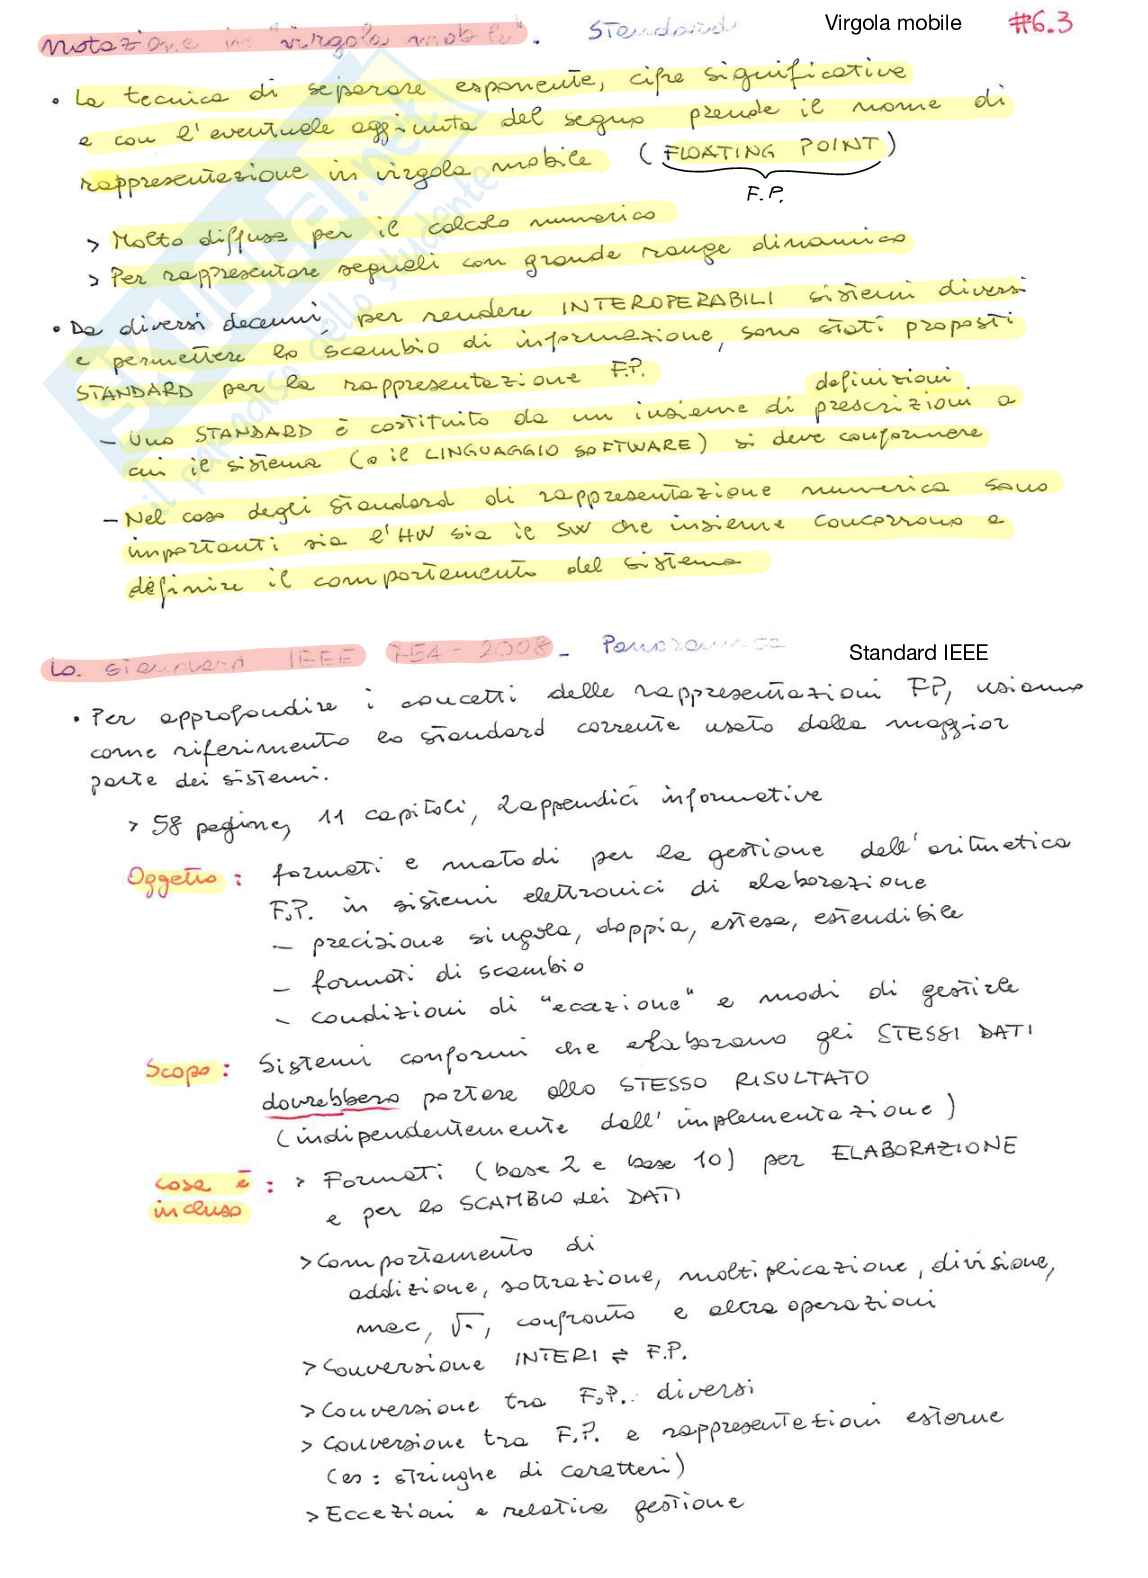 Notazione in "virgola mobile". Standard Virgola mobile #6.3
• La tecnica di separare esponente, cifre significative
e con l'eventuale aggiunta del segno prende il nome di
rappresentazione in virgola mobile (FLOATING POINT)
F.P.
> Molto diffusa per il calcolo numerico
> Per rappresentare segnali con grande range dinamico
• Da diversi decenni, per rendere INTEROPERABILI sistemi diversi
e permettere lo scambio di informazione, sono stati proposti
STANDARD per la rappresentazione F.P.
definizioni
– Uno STANDARD è costituito da un insieme di prescrizioni a
cui il sistema (o il LINGUAGGIO SOFTWARE) si deve conformare
– Nel caso degli standard di rappresentazione numerica sono
importanti sia l'HW sia il SW che insieme concorrono a
definire il comportamento del sistema
Lo standard IEEE 754-2008 - Panoramica Standard IEEE
• Per approfondire i concetti delle rappresentazioni FP, usiamo
come riferimento lo standard corrente usato dalla maggior
parte dei sistemi.
> 58 pagine, 11 capitoli, 2 appendici informative
Oggetto : formati e metodi per la gestione dell'aritmetica
F.P. in sistemi elettronici di elaborazione
– precisione singola, doppia, estesa, estendibile
– formati di scambio
– condizioni di "eccezione" e modi di gestirle
Scopo : Sistemi conformi che elaborano gli STESSI DATI
dovrebbero portare allo STESSO RISULTATO
(indipendentemente dall'implementazione)
cosa è : > Formati (base 2 e base 10) per ELABORAZIONE
incluso e per lo SCAMBIO dei DATI
> Comportamento di
addizione, sottrazione, moltiplicazione, divisione,
mac, √·, confronto e altre operazioni
> Conversione INTERI ⇌ F.P.
> Conversione tra F.P. diversi
> Conversione tra F.P. e rappresentazioni esterne
(es: stringhe di caratteri)
> Eccezioni e relativa gestione
SKUOLA.net
il paradiso dello studente